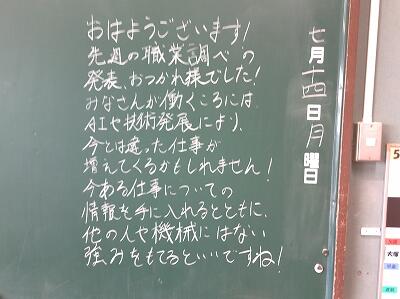 おはようございます!
先週の職業調べの
発表、おつかれ様でした!
みなさんが働くころには、
AIや技術発展により、
今とは違った仕事が
増えてくるかもしれません!
今ある仕事についての
情報を手に入れるとともに、
他の人や機械にはない
強みをもてるといいですね!
七月十四日月曜日
5
大塚